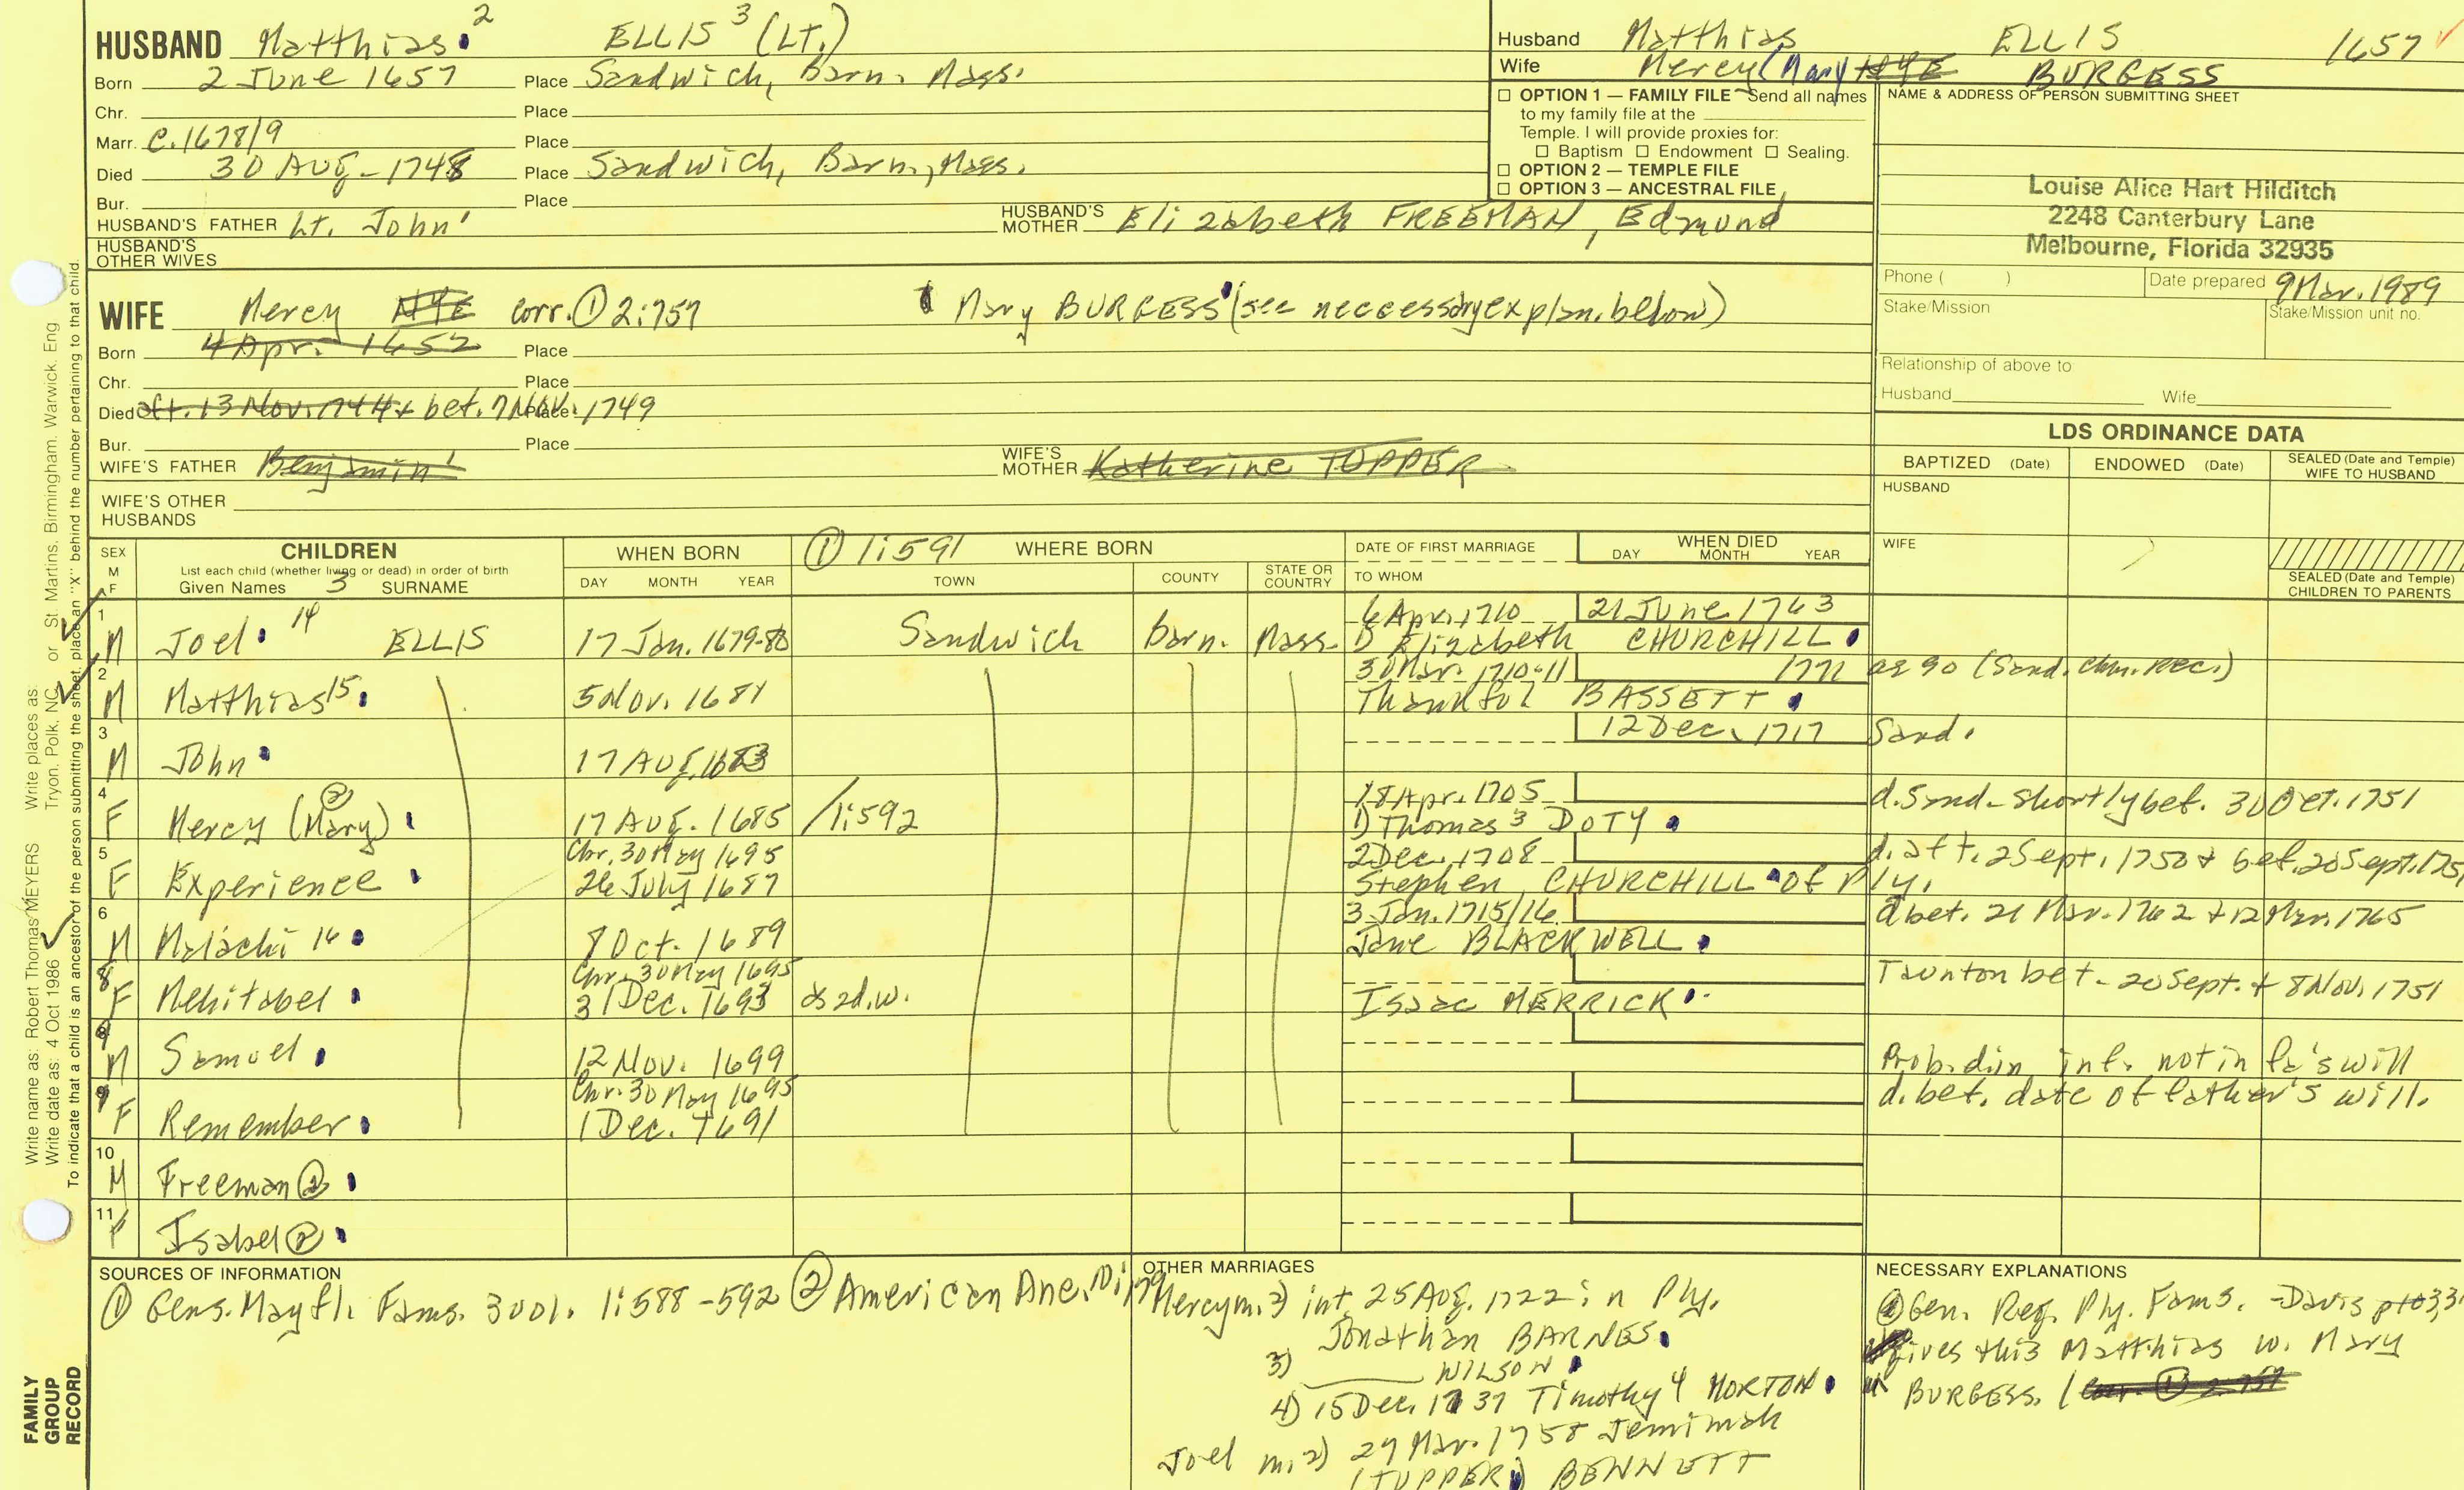 HUSBAND Matthias 2 ELLIS 3 (LT.)
Born 2 June 1657 Place Sandwich, Barn. Mass.
Chr. Place
Marr. c.1678/9 Place
Died 30 Aug. 1748 Place Sandwich, Barn., Mass.
Bur. Place
HUSBAND'S FATHER Lt. John' HUSBAND'S MOTHER Elizabeth FREEMAN, Edmund
HUSBAND'S OTHER WIVES
Husband Matthias ELLIS 1657
Wife Mercy (Mary NYE BURGESS
☐ OPTION 1 — FAMILY FILE Send all names
to my family file at the
Temple. I will provide proxies for:
☐ Baptism ☐ Endowment ☐ Sealing.
☐ OPTION 2 — TEMPLE FILE
☐ OPTION 3 — ANCESTRAL FILE
NAME & ADDRESS OF PERSON SUBMITTING SHEET
Louise Alice Hart Hilditch
2248 Canterbury Lane
Melbourne, Florida 32935
Phone ( ) Date prepared 9 Mar. 1989
Stake/Mission Stake/Mission unit no.
Relationship of above to
Husband Wife
WIFE Mercy NYE corr. ① 2:757 Mary BURGESS (see neccessary explan. below)
Born 4 Apr. 1652 Place
Chr. Place
Died aft. 13 Nov. 1744 + bet. 7 Nov. 1749 Place
Bur. Place
WIFE'S FATHER Benjamin' WIFE'S MOTHER Katherine TUPPER
WIFE'S OTHER HUSBANDS
LDS ORDINANCE DATA
BAPTIZED (Date) ENDOWED (Date) SEALED (Date and Temple) WIFE TO HUSBAND
HUSBAND
WIFE
SEALED (Date and Temple) CHILDREN TO PARENTS
SEX M F CHILDREN WHEN BORN ① 1:591 WHERE BORN DATE OF FIRST MARRIAGE WHEN DIED
List each child (whether living or dead) in order of birth
Given Names 3 SURNAME DAY MONTH YEAR TOWN COUNTY STATE OR COUNTRY TO WHOM DAY MONTH YEAR
6 Apr. 1710 21 June 1763
1 M Joel 14 ELLIS 17 Jan. 1679-80 Sandwich Barn. Mass. 1) Elizabeth CHURCHILL
3 Mar. 1710-11 1771 ae 90 (Sand. Chu. rec.)
2 M Matthias 15 5 Nov. 1681 Thankful BASSETT
12 Dec. 1717 Sand.
3 M John 17 Aug. 1683
18 Apr. 1705 d. Sand. shortly bef. 30 Oct. 1751
4 F Mercy (Mary) ② 17 Aug. 1685 /1:592 1) Thomas 3 DOTY
Chr. 30 May 1695 2 Dec. 1708 d. aft. 2 Sept. 1750 + bef. 20 Sept. 175
5 F Experience 26 July 1687 Stephen CHURCHILL of Ply.
3 Jan. 1715/16 d bet. 21 Mar. 1762 + 12 Mar. 1765
6 M Malachi 16 8 Oct. 1689 Jane BLACKWELL
Chr. 30 May 1695 Taunton bet. 20 Sept. + 8 Nov. 1751
8 F Mehitabel 31 Dec. 1693 as 2d. w. Isaac MERRICK
M Samuel 12 Nov. 1699 Prob. d. in inf. not in fa's will
Chr. 30 May 1695 d. bet. date of father's will.
9 F Remember 1 Dec. 1691
10 M Freeman ②
11 F Isabel ②
SOURCES OF INFORMATION
① Gens. Mayfl. Fams. 3 vol. 1:588-592 ② American Anc.
OTHER MARRIAGES
Mercy m. 2) int. 25 Aug. 1722 in Ply.
Jonathan BARNES
3) WILSON
4) 15 Dec. 1737 Timothy 4 MORTON
Joel m. 2) 29 Mar. 1758 Jemimah
(TUPPER) BENNETT
NECESSARY EXPLANATIONS
Gen. Reg. Ply. Fams. - Davis
gives this Matthias w. Mary
BURGESS. (
Write name as: Robert Thomas MEYERS Write places as: Tryon, Polk, NC or St. Martins, Birmingham, Warwick, Eng
Write date as: 4 Oct 1986
To indicate that a child is an ancestor of the person submitting the sheet, place an "X" behind the number pertaining to that child.
FAMILY
GROUP
RECORD